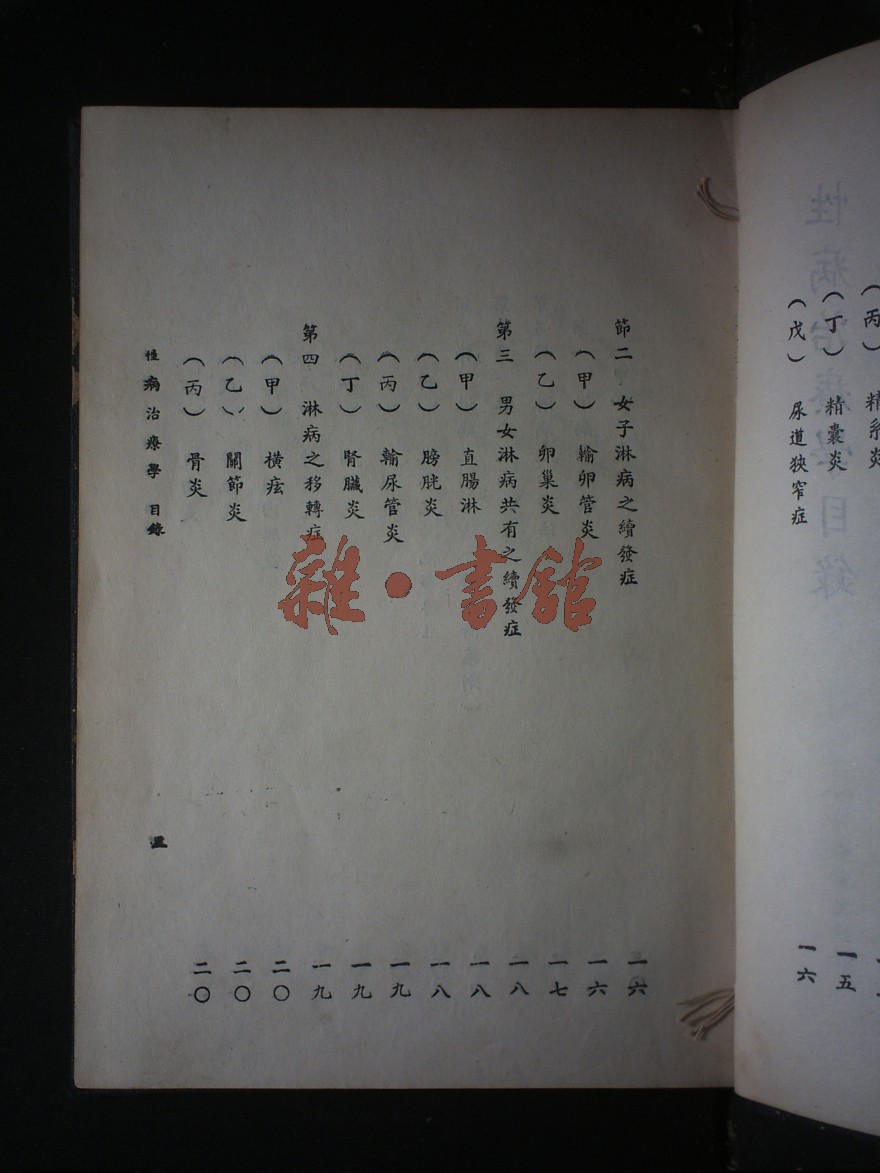 （丙）精系炎
（丁）精囊炎 一五
（戊）尿道狹窄症 一六
節二 女子淋病之續發症 一六
（甲）輸卵管炎 一六
（乙）卵巢炎 一七
第三 男女淋病共有之續發症 一八
（甲）直腸淋 一八
（乙）膀胱炎 一八
（丙）輸尿管炎 一九
（丁）腎臟炎 一九
第四 淋病之移轉症 一九
（甲）橫痃 二〇
（乙）關節炎 二〇
（丙）骨炎 二〇
性病治療學 目錄
雜·書館